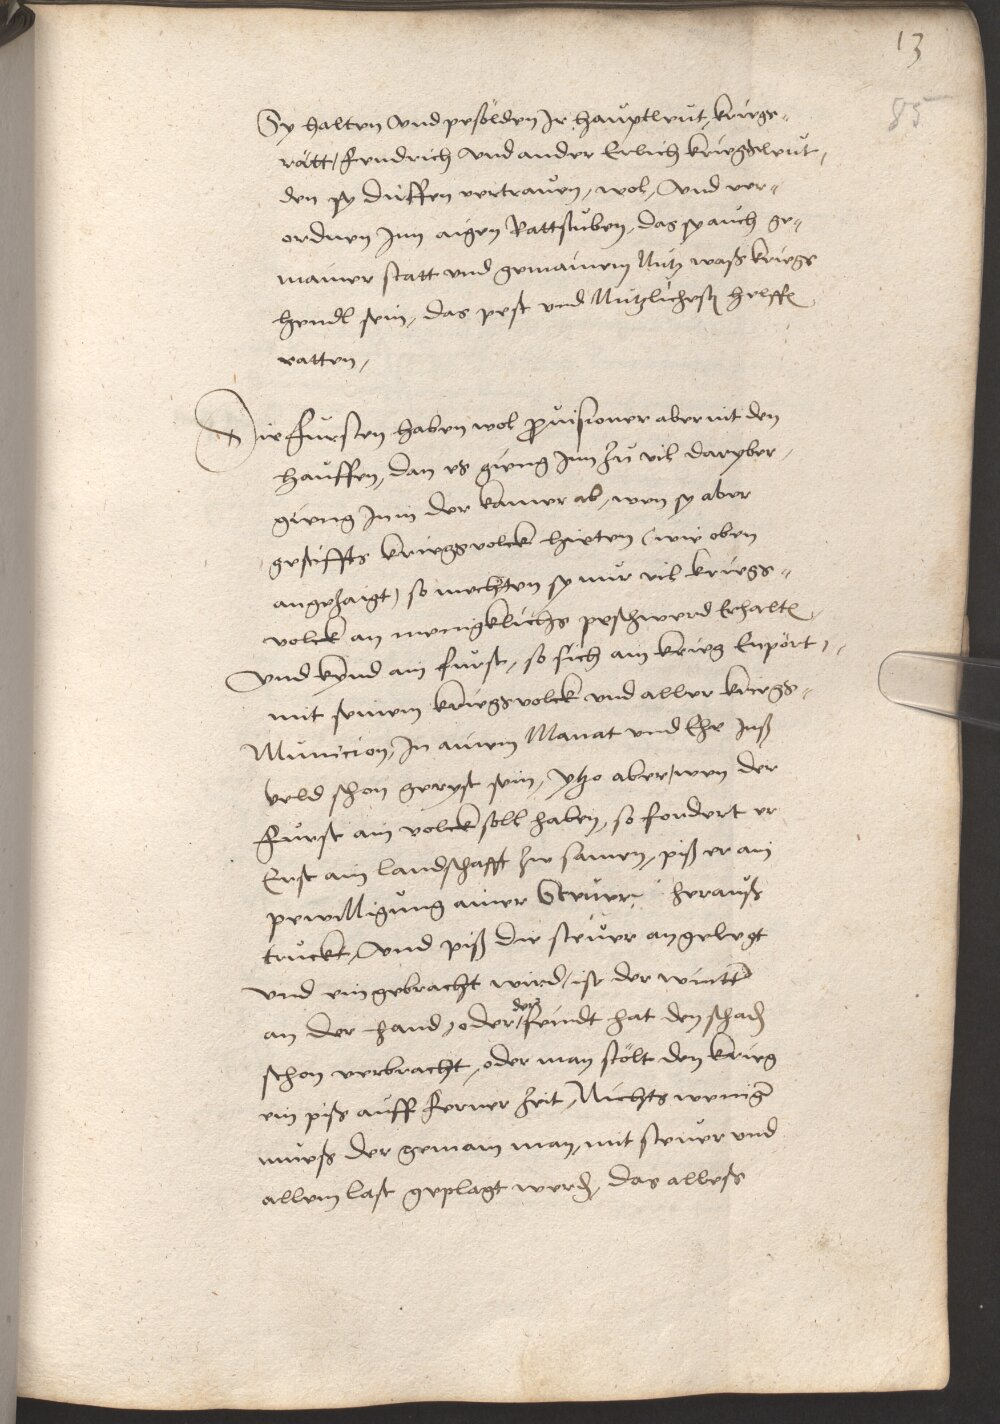 13
85
Sy halten vnd pesölden Ir hauptleut, kriegs-
rätt, fendrich vnd ander Erlich kriegsleut,
den sy düffen vertrauen, wol, vnd ver-
ordnen Inn aigen Rattstuben, das sy auch ge-
mainer statt vnd gemainem Nutz wass kriegs
hendl sein, das pest vnd Nützlichest helffen
ratten,
Die fürsten haben wol provisioner aber nit den
hauffen, dan es gieng Inn zu vil daryber,
gieng Inn der kamer ab, wen sy aber
gestiffts kriegsvolck hieten (wie oben
angezaigt) so mechten sy nur vil kriegs-
volck an menigklichs peschwerd Erhalten,
vnd kynd ain fürst, so sich ain krieg Enpört,
mit seinem kriegsvolck vnd aller kriegs-
Municion, In ainem Manat vnd Ehe Inss
veld schon geryst sein, ytzo aber, wen der
fürst ain volck soll haben, so fordert er
Erst ain landschafft zw samen, piss er ain
pewilligung ainer Steuer herauss
truckt, vnd piss die steuer angelegt
vnd eingebracht wird, ist der winter
an der hand, oder der feindt hat den schaden
schon verbracht, oder man stölt den krieg
ein piss auff ferner zeit, Nichts weniger
muess der gemain man, mit steuer vnd
allem last geplagt werden, das alless